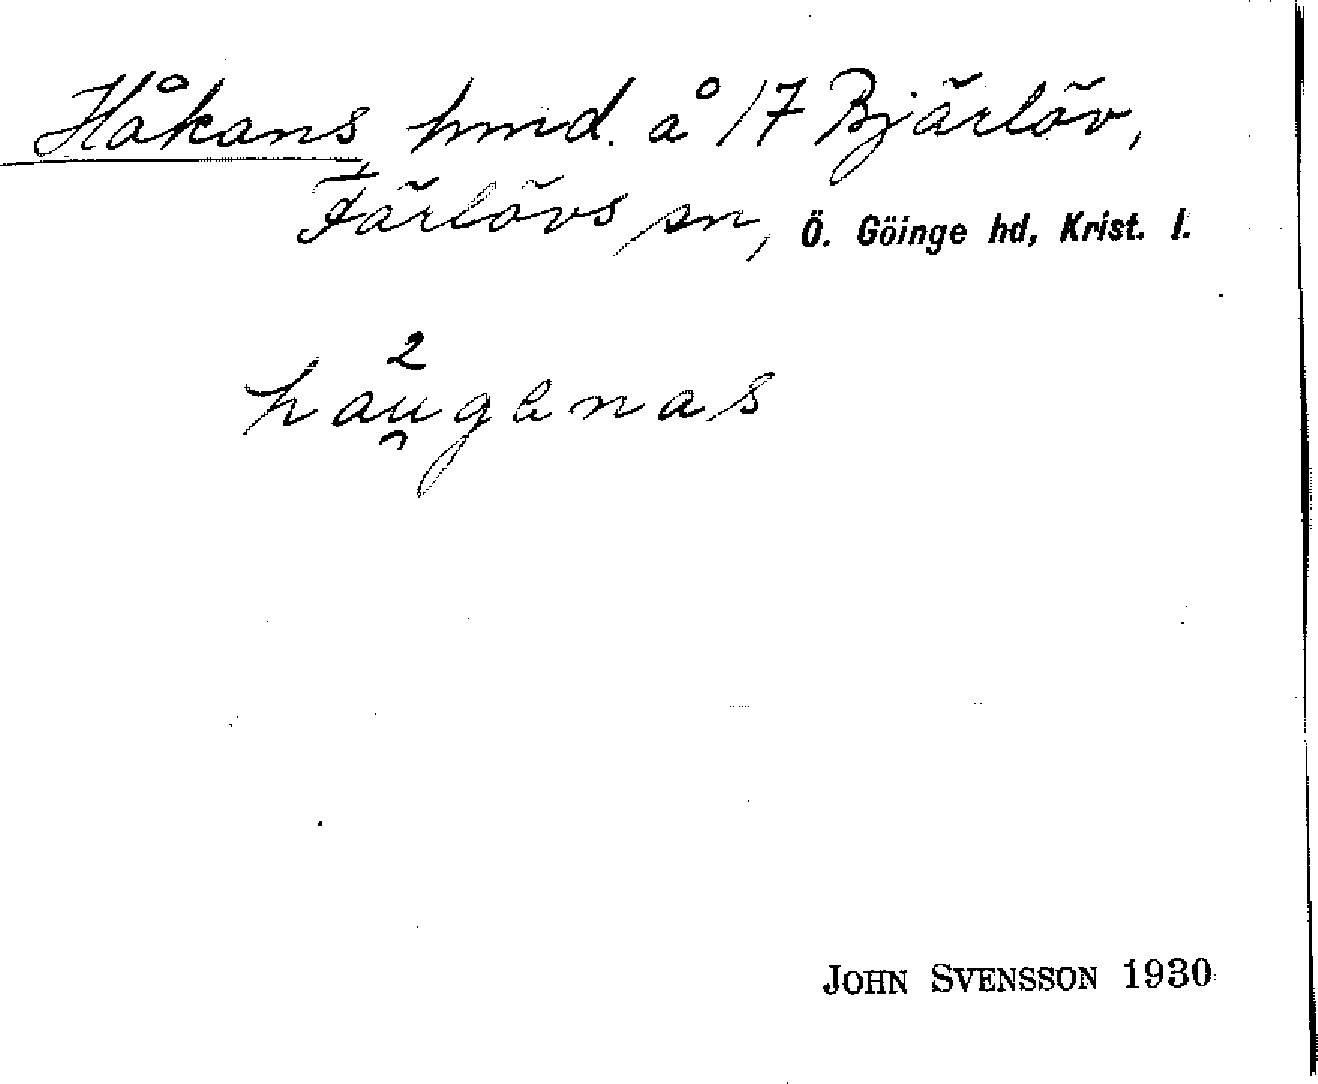 Håkans hmd. å 17 Bjärlöv,
Färlövs sn, Ö. Göinge hd, Krist. l.
2
hau̯ganas
JOHN SVENSSON 1930